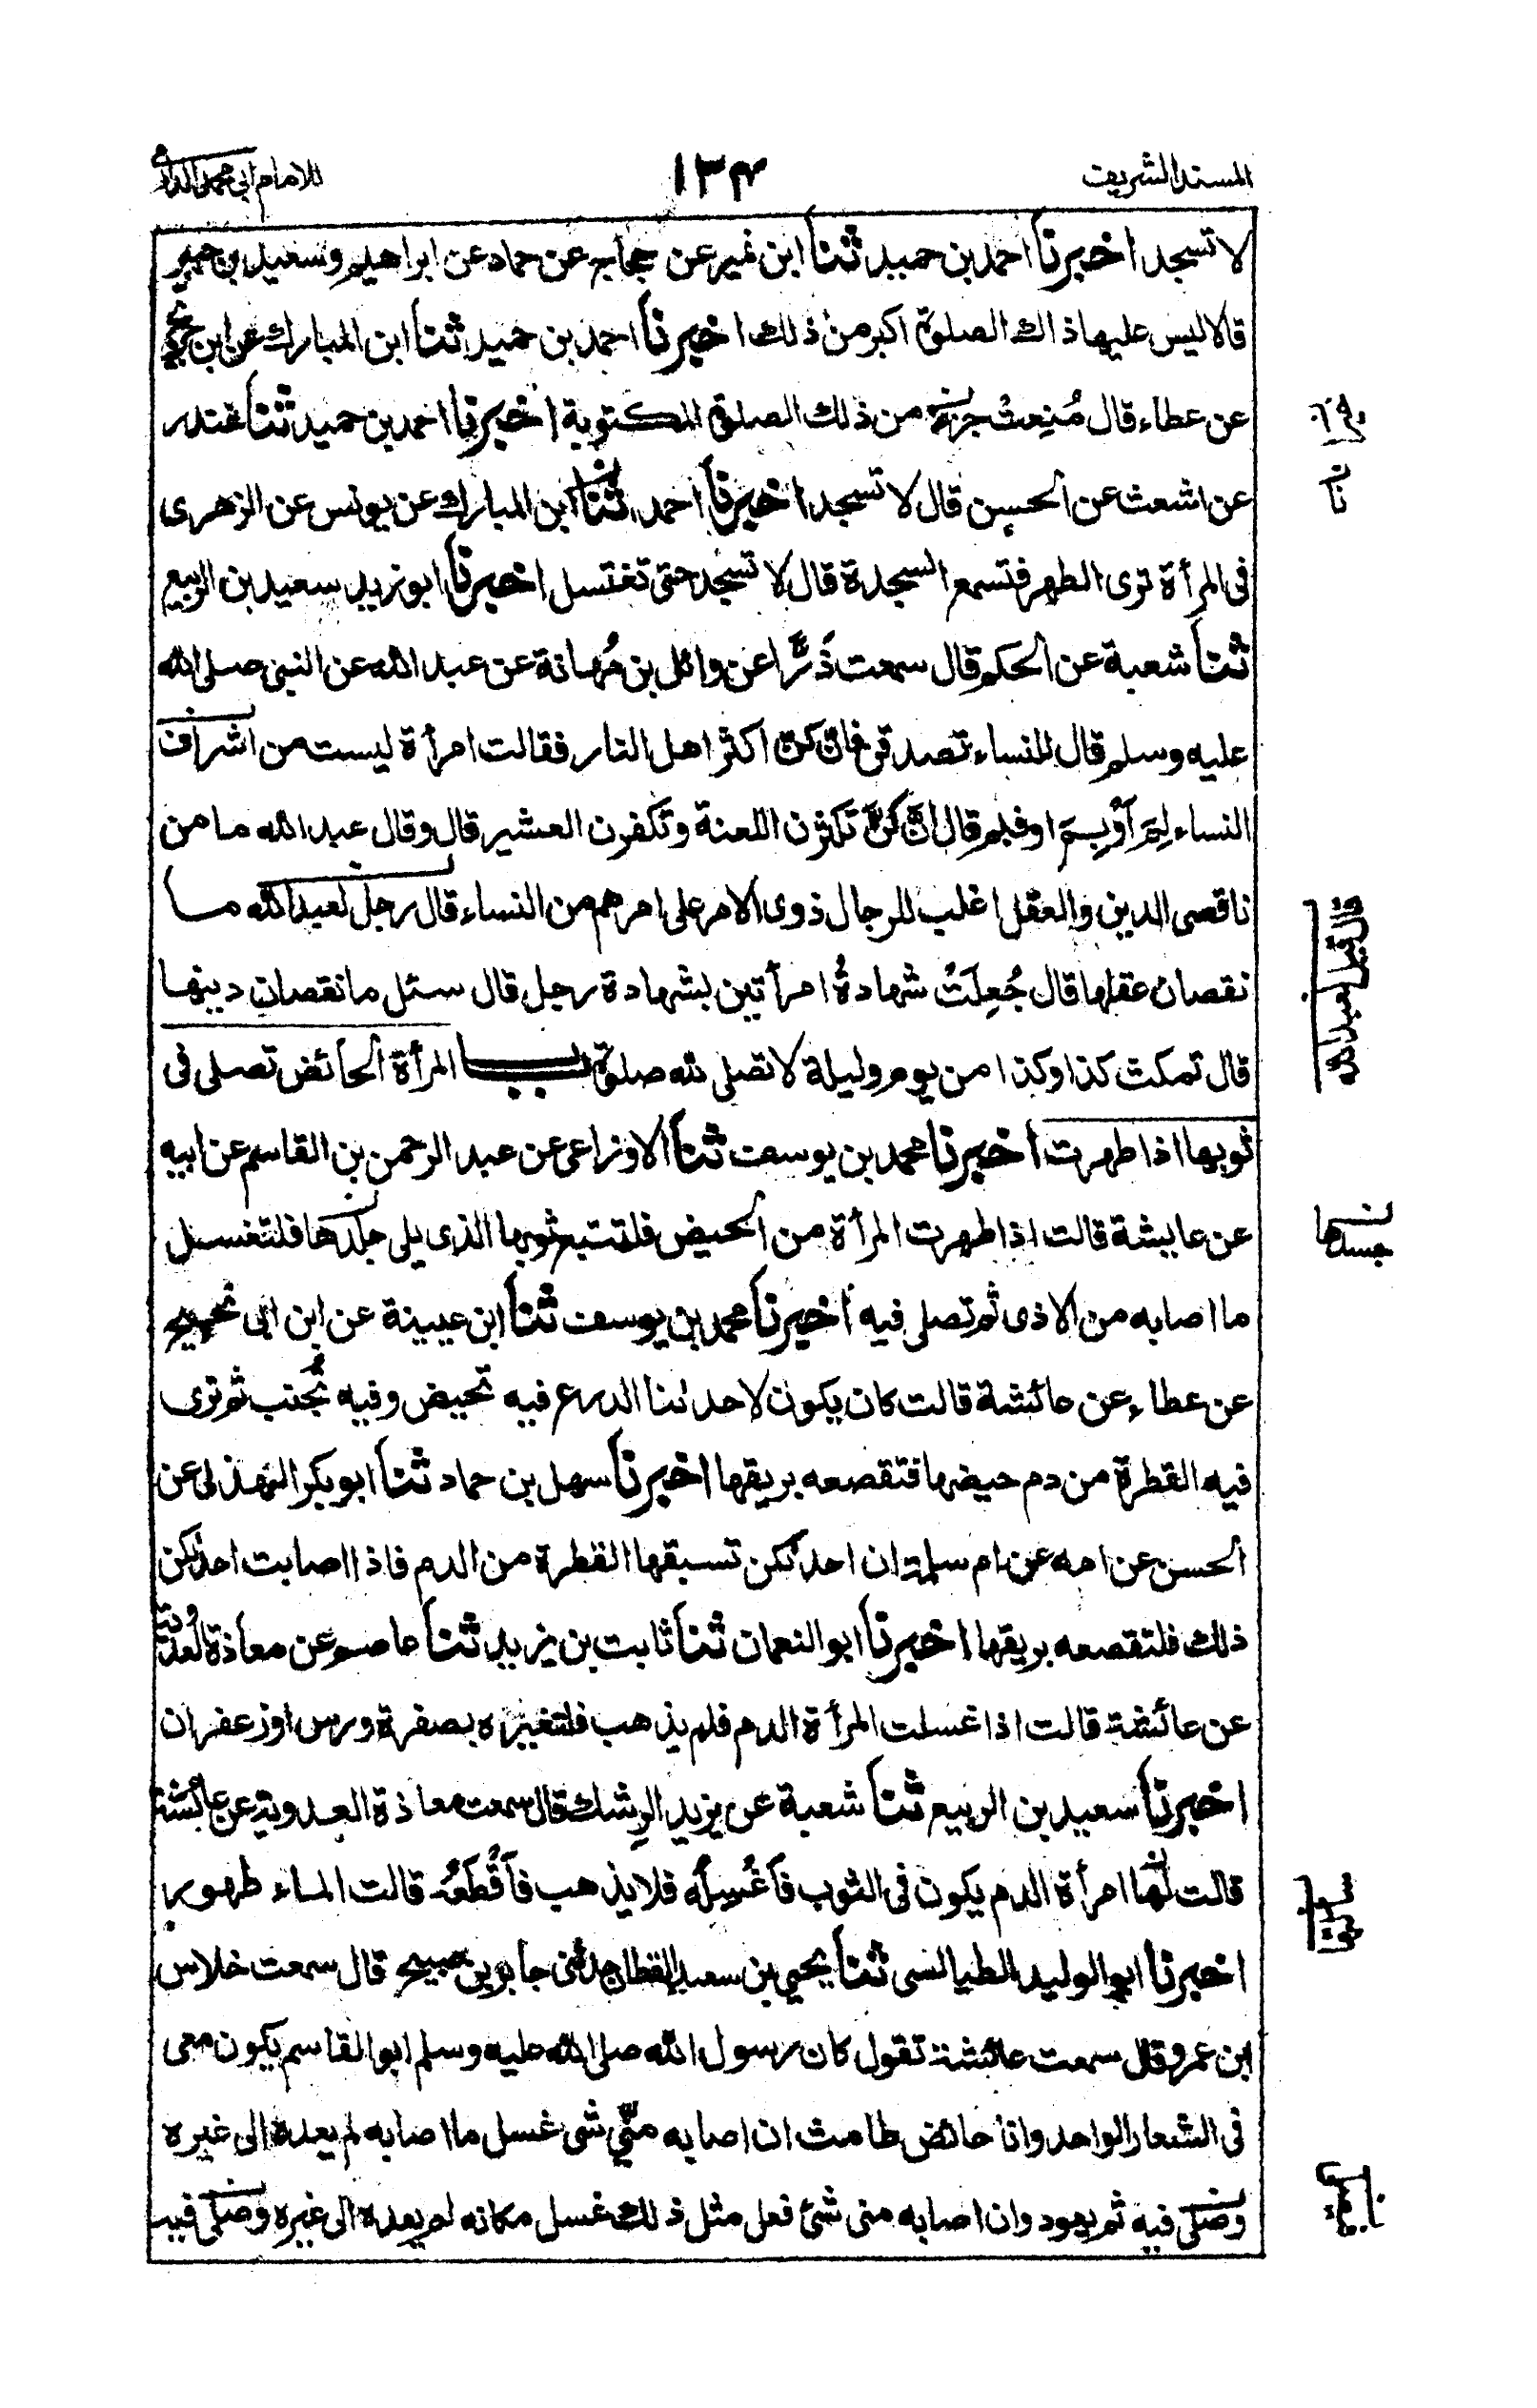 المسند الشريف
١٣٤
للامام ابى محمد الدارمى
لا تسجد اخبرنا احمد بن حميد ثنا ابن نمير عن حجاج عن حماد عن ابراهيم وسعيد بن جبير
قالا ليس عليها ذاك الصلوة اكبر من ذلك اخبرنا احمد بن حميد ثنا ابن المبارك عن ابن جريج
عن عطاء قال مُنِعتْ خير من ذلك الصلوة المكتوبة اخبرنا احمد بن حميد ثنا غندر
عن اشعث عن الحسن قال لا تسجد اخبرنا احمد ثنا ابن المبارك عن يونس عن الزهرى
فى المرأة ترى الطهر فتسمع السجدة قال لا تسجد حتى تغتسل اخبرنا ابو زيد سعيد بن الربيع
ثنا شعبة عن الحكم قال سمعت ذَرًّا عن وائل بن مُهانة عن عبد الله عن النبى صلى الله
عليه وسلم قال للنساء تصدقن فانكن اكثر اهل النار فقالت امرأة ليست من اشراف
النساء لِمَ اَوْ بِمَ اوفيم قال انكن تكثرن اللعنة وتكفرن العشير قال وقال عبد الله ما من
ناقصى الدين والعقل اغلب للرجال ذوى الامر على امرهم من النساء قال رجل لعبد الله ما
نقصان عقلها قال جُعِلَتْ شهادةُ امرأتين بشهادة رجل قال سئل ما نقصان دينها
قال تمكث كذا وكذا من يوم وليلة لا تصلى لله صلوة باب المرأة الحائض تصلى فى
ثوبها اذا طهرت اخبرنا محمد بن يوسف ثنا الاوزاعى عن عبد الرحمن بن القاسم عن ابيه
عن عايشة قالت اذا طهرت المرأة من الحيض فلتتبع ثوبها الذى يلى جلدها فلتغسل
ما اصابه من الاذى ثم تصلى فيه اخبرنا محمد بن يوسف ثنا ابن عيينة عن ابن ابى نجيح
عن عطاء عن عائشة قالت كان يكون لاحدٰنا الدرع فيه تحيض وفيه تُجنب ثم ترى
فيه القطرة من دم حيضها فتقصعه بريقها اخبرنا سهل بن حماد ثنا ابو بكر الهذلى عن
الحسن عن امه عن ام سلمة ان احدٰكن تسبقها القطرة من الدم فاذا اصابت احدٰكن
ذلك فلتقصعه بريقها اخبرنا ابو النعمان ثنا ثابت بن يزيد ثنا عاصم عن معاذة العدوية
عن عائشة قالت اذا غسلت المرأة الدم فلم يذهب فلتغيره بصفرة ورس او زعفران
اخبرنا سعيد بن الربيع ثنا شعبة عن يزيد الرِشك قال سمعت معاذة العدوية عن عائشة
قالت لها امرأة الدم يكون فى الثوب فَاَغْسِلُه فلا يذهب فَاَقْطَعُه قالت الماء طهور
اخبرنا ابو الوليد الطيالسى ثنا يحيى بن سعيد القطان حدثنى جابر بن صبيح قال سمعت خلاس
ابن عمرو قال سمعت عائشة تقول كان رسول الله صلى الله عليه وسلم ابو القاسم يكون معى
فى الشعار الواحد وانا حائض طامث ان اصابه منّى شى غسل ما اصابه لم يعده الى غيره
وصلى فيه ثم يعود وان اصابه منى شئ فعل مثل ذلك غسل مكانه لم يعده الى غيره وصلى فيه
نا
قال قيل لعبد الله
جسدها